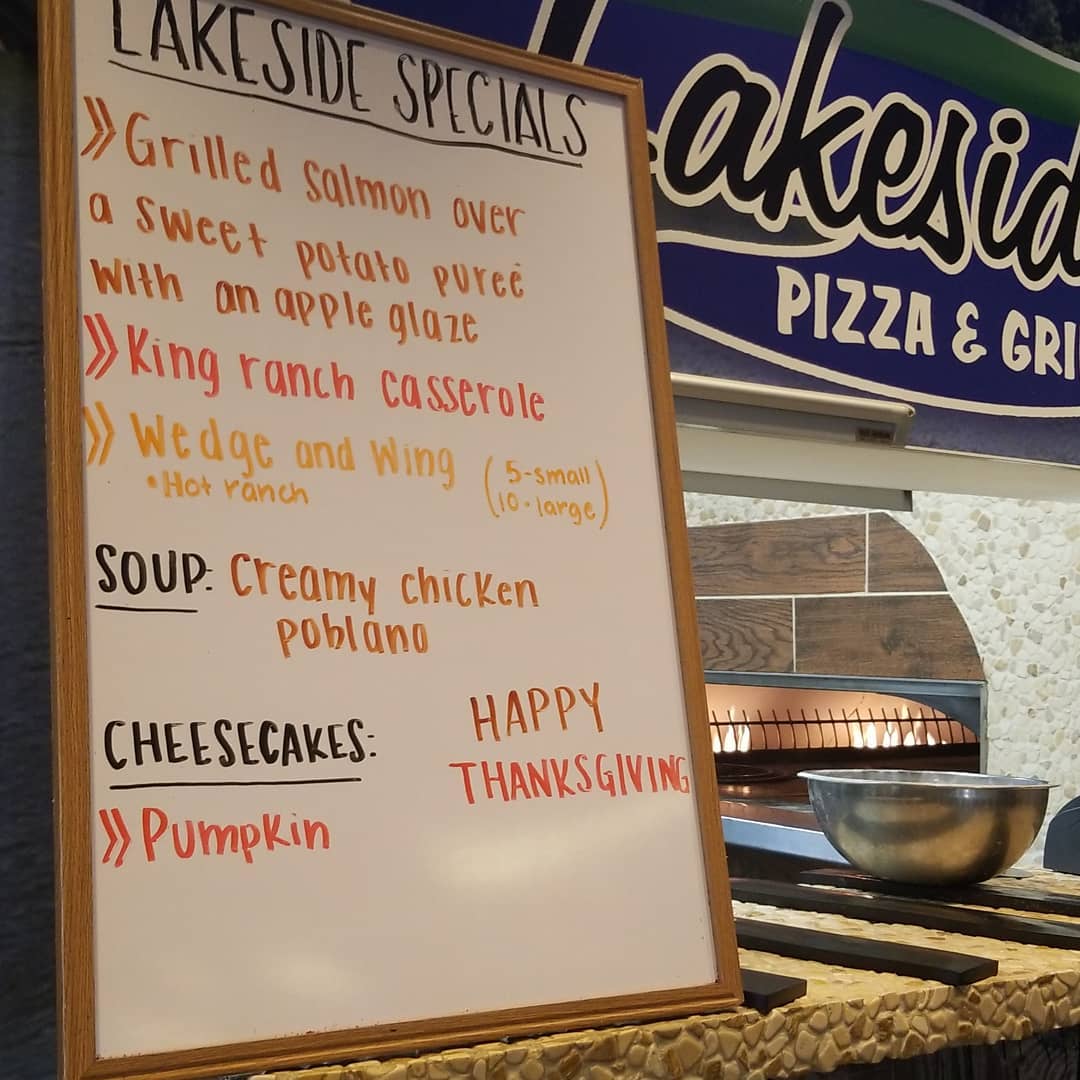 LAKESIDE SPECIALS
» Grilled salmon over
a sweet potato pureé
with an apple glaze
» King ranch casserole
» Wedge and Wing (5-small
10-large)
• Hot ranch
SOUP: Creamy chicken
poblano
CHEESECAKES:
» Pumpkin
HAPPY
THANKSGIVING
Lakesid
PIZZA & GRI